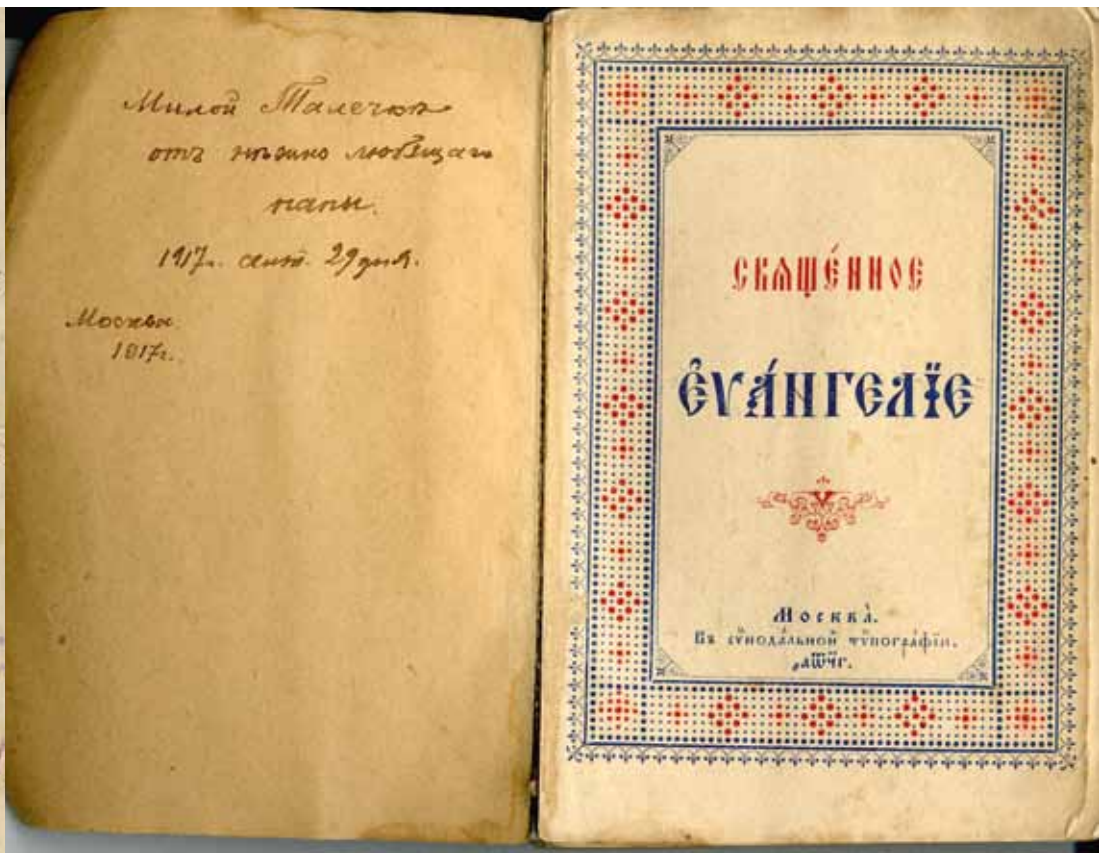 Милой Талечкѣ
отъ нѣжно любящаго
папы.
1917г. сент. 29 дня.
Москва.
1917г.
СВѦЩЕ́ННОЕ
Є҆ѴА́НГЕЛЇЕ
Москва̀.
Въ сѷнода́льной тѷпогра́фїи.
҂аѿчг.